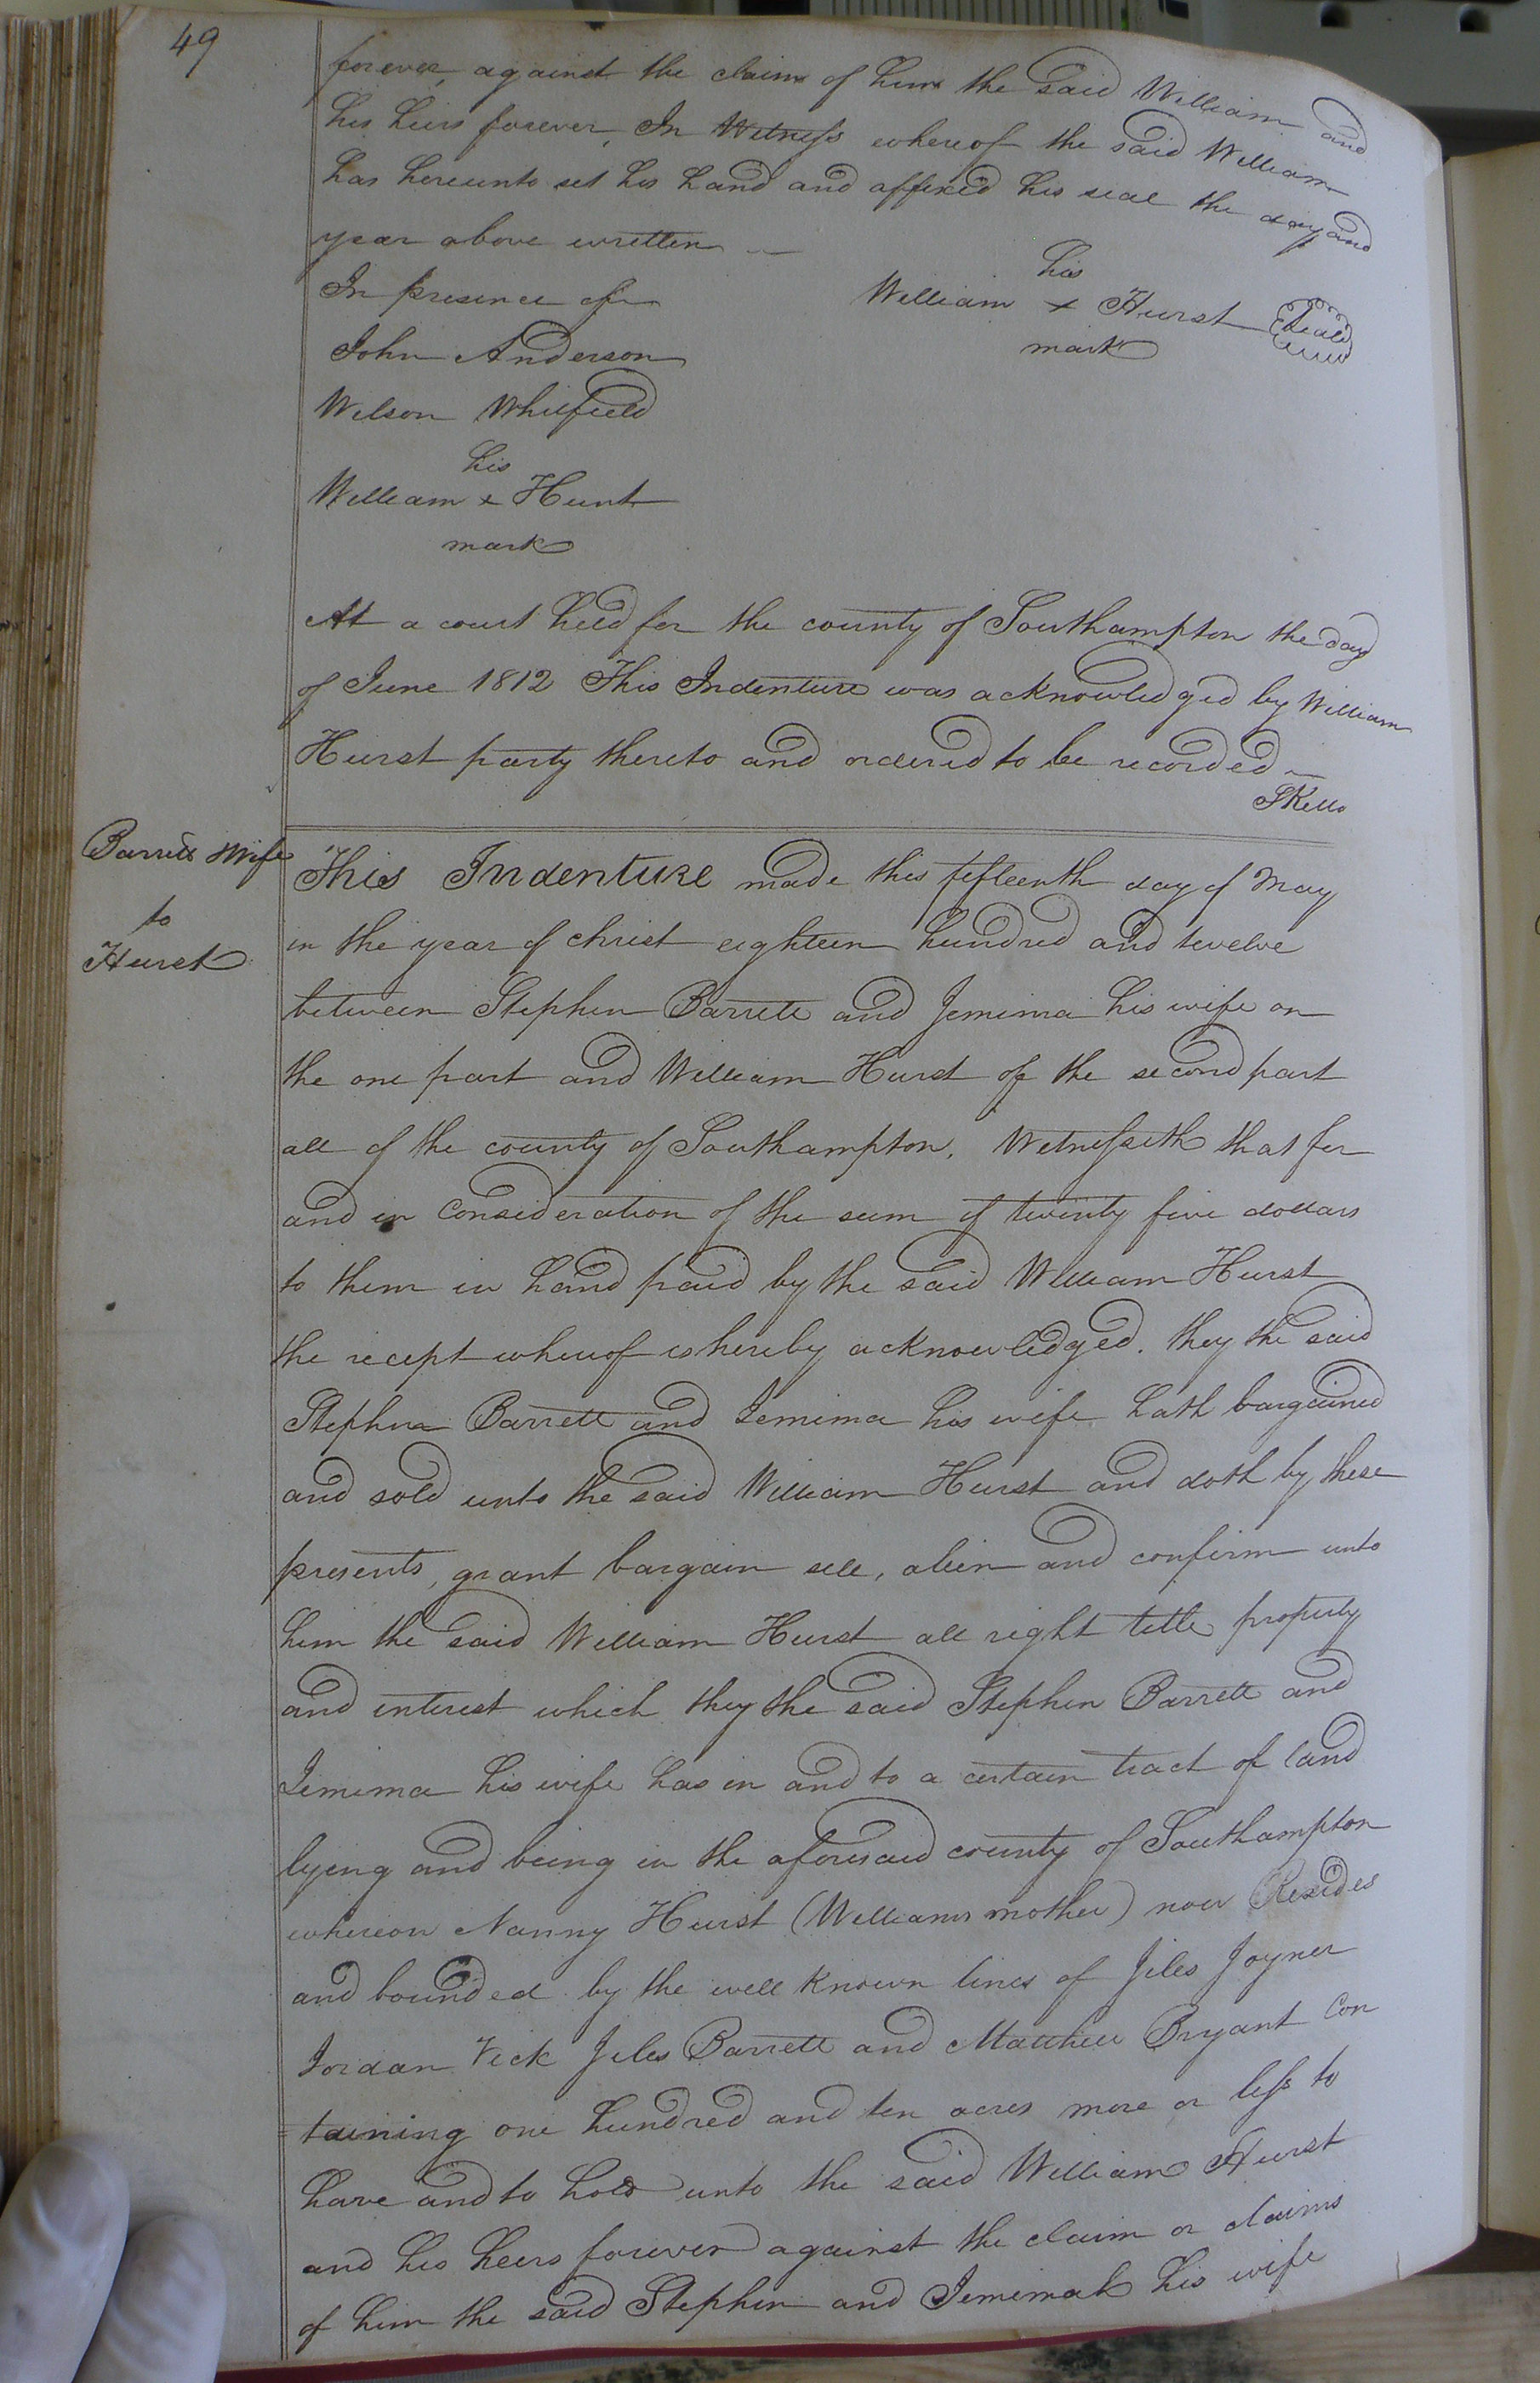 49
forever, against the claim of him the said William and
his heirs forever, In Witness whereof the said William
has hereunto set his hand and affixed his seal the day and
year above written
In presence of
his
William x Hurst Seal
mark
John Anderson
Wilson Whitfield
his
William x Hunt
mark
At a court held for the county of Southampton the day
of June 1812 This Indenture was acknowledged by William
Hurst party thereto and ordered to be recorded
SKello
Barrett Wife
to
Hurst
This Indenture made this fifteenth day of May
in the year of christ eighteen hundred and twelve
between Stephen Barrett and Jemima his wife on
the one part and William Hurst of the second part
all of the county of Southampton, Witnesseth that for
and in Consideration of the sum of twenty five dollars
to them in hand paid by the said William Hurst
the recept whereof is hereby acknowledged. they the said
Stephen Barrett and Jemima his wife hath bargained
and sold unto the said William Hurst and doth by these
presents, grant bargain sell, alien and confirm unto
him the said William Hurst all right title property
and interest which they the said Stephen Barrett and
Jemima his wife has in and to a certain tract of land
lying and being in the aforesaid county of Southampton
whereon Nanny Hurst (Williams mother) now Resides
and bounded by the well known lines of Jiles Joyner
Jordan Vick Jiles Barrett and Matthew Bryant Con
=taining one hundred and ten acres more or less to
have and to hold unto the said William Hurst
and his heers forever against the claim or claims
of him the said Stephen and Jemimah his wife